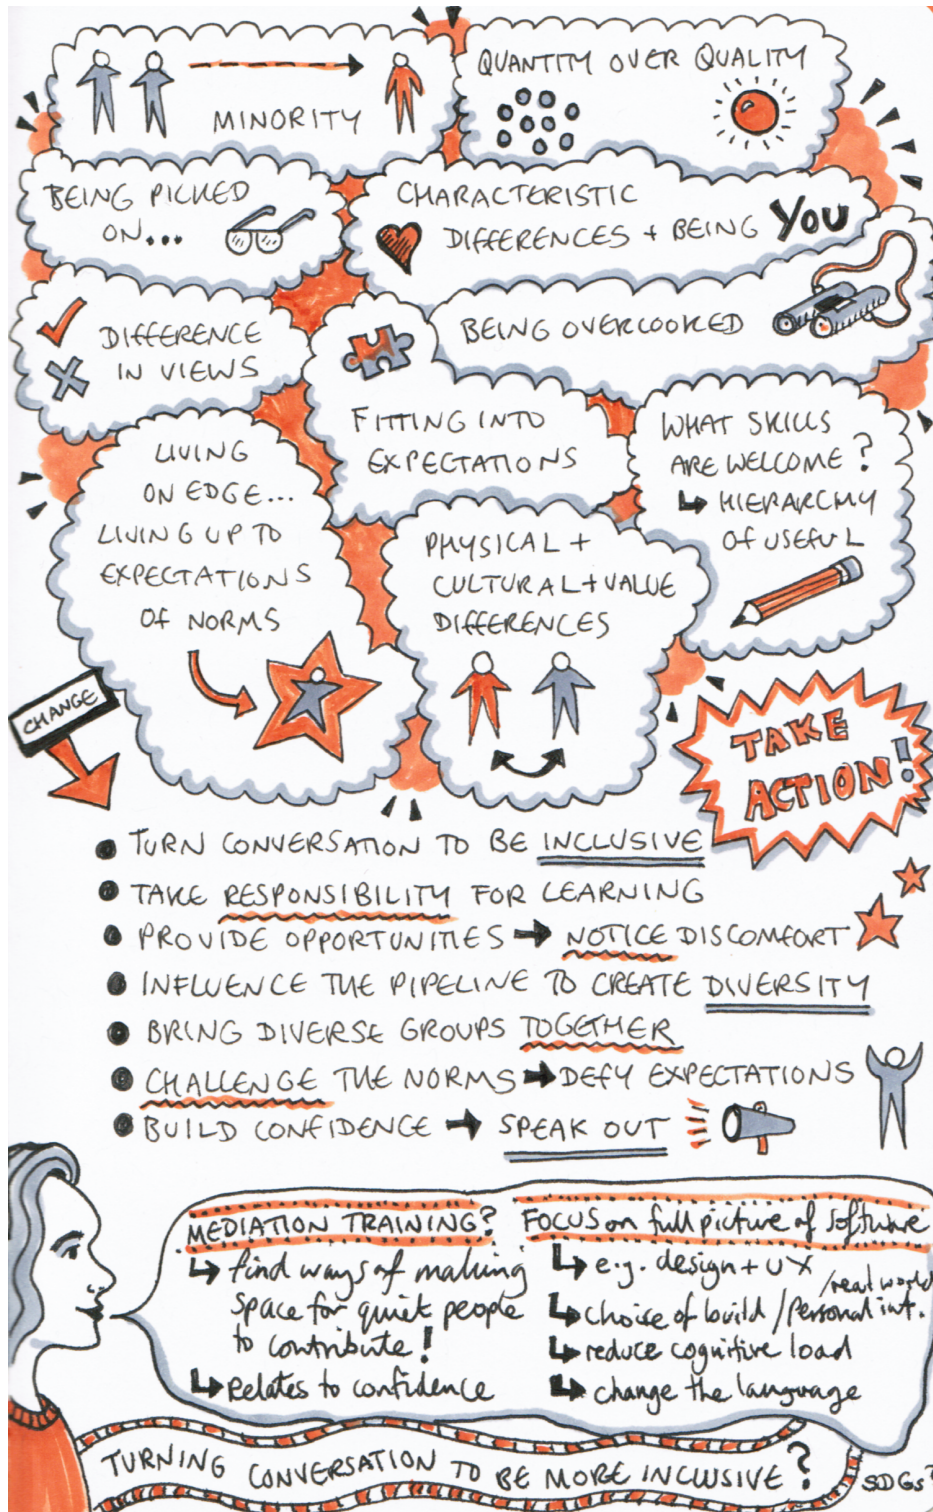 MINORITY
QUANTITY OVER QUALITY
BEING PICKED
ON...
CHARACTERISTIC
DIFFERENCES + BEING YOU
DIFFERENCE
IN VIEWS
BEING OVERLOOKED
FITTING INTO
EXPECTATIONS
WHAT SKILLS
ARE WELCOME?
↳ HIERARCHY
OF USEFUL
LIVING
ON EDGE...
LIVING UP TO
EXPECTATIONS
OF NORMS
PHYSICAL +
CULTURAL + VALUE
DIFFERENCES
CHANGE
TAKE
ACTION!
• TURN CONVERSATION TO BE INCLUSIVE
• TAKE RESPONSIBILITY FOR LEARNING
• PROVIDE OPPORTUNITIES → NOTICE DISCOMFORT
• INFLUENCE THE PIPELINE TO CREATE DIVERSITY
• BRING DIVERSE GROUPS TOGETHER
• CHALLENGE THE NORMS → DEFY EXPECTATIONS
• BUILD CONFIDENCE → SPEAK OUT
MEDIATION TRAINING?
↳ find ways of making
space for quiet people
to contribute!
↳ Relates to confidence
FOCUS on full picture of software
↳ e.g. design + UX
/real world
↳ choice of build / Personal int.
↳ reduce cognitive load
↳ change the language
TURNING CONVERSATION TO BE MORE INCLUSIVE?
SDGs?